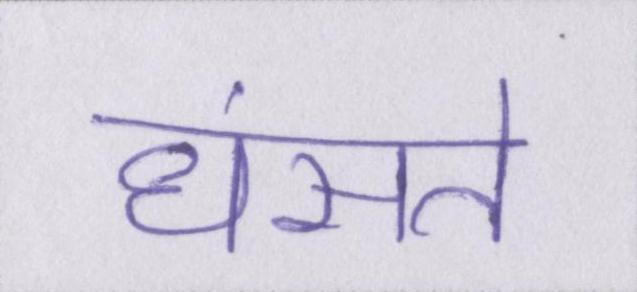 धंसते